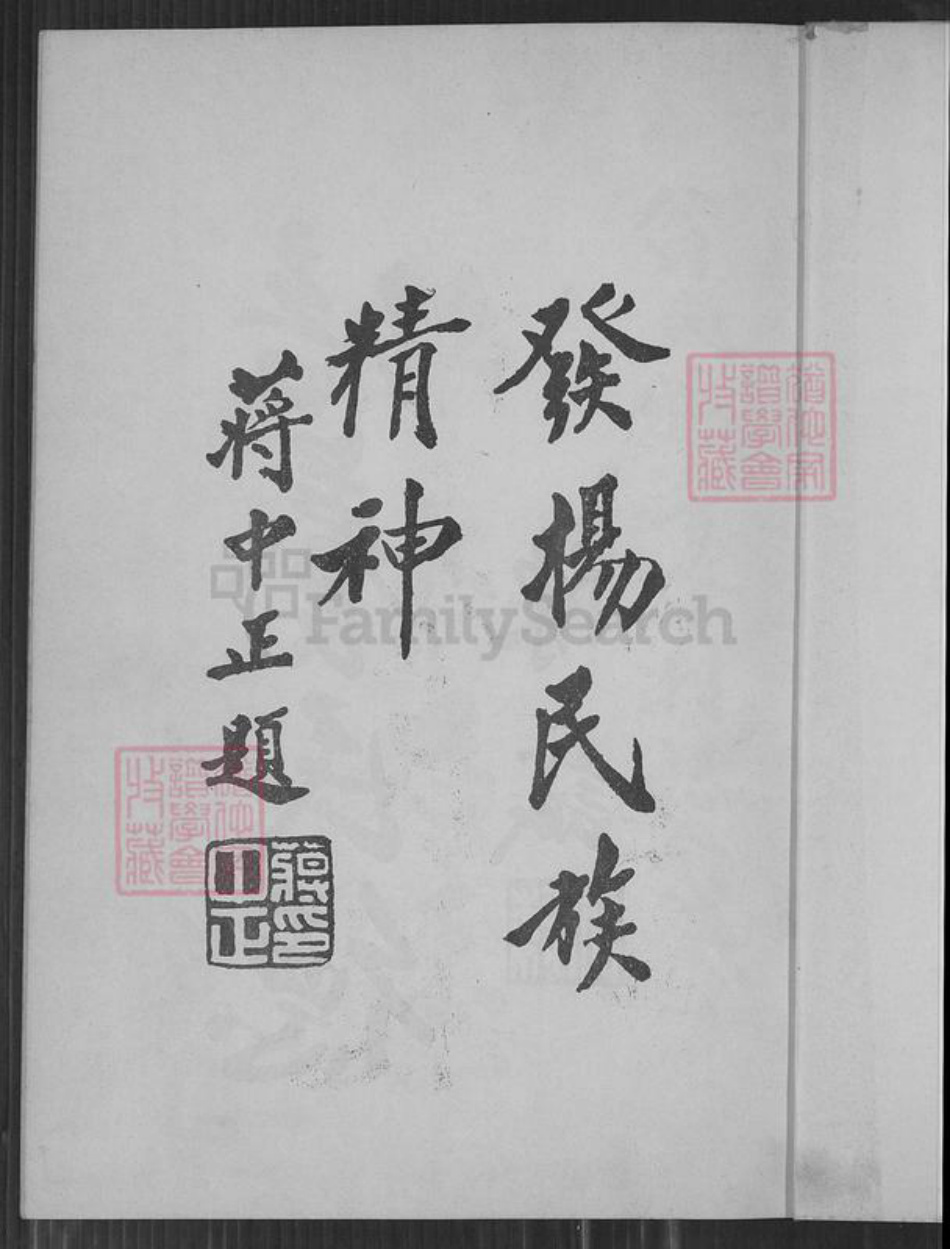 發揚民族
精神
蔣中正題
蔣印
中正
譜學會
收藏
譜學會
收藏
FamilySearch